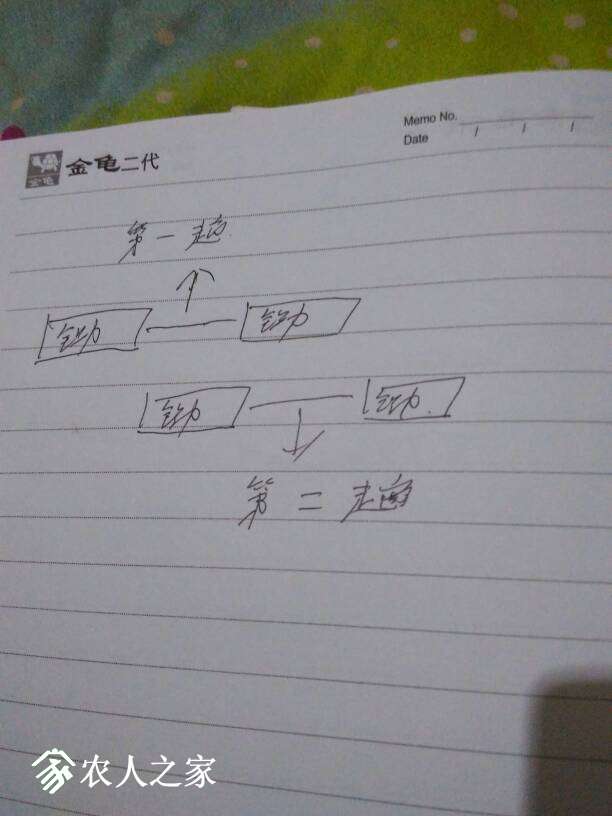 Memo No.
Date / / /
金龟
金龟二代
第一趟
锄 锄
锄 锄
第二趟
农人之家